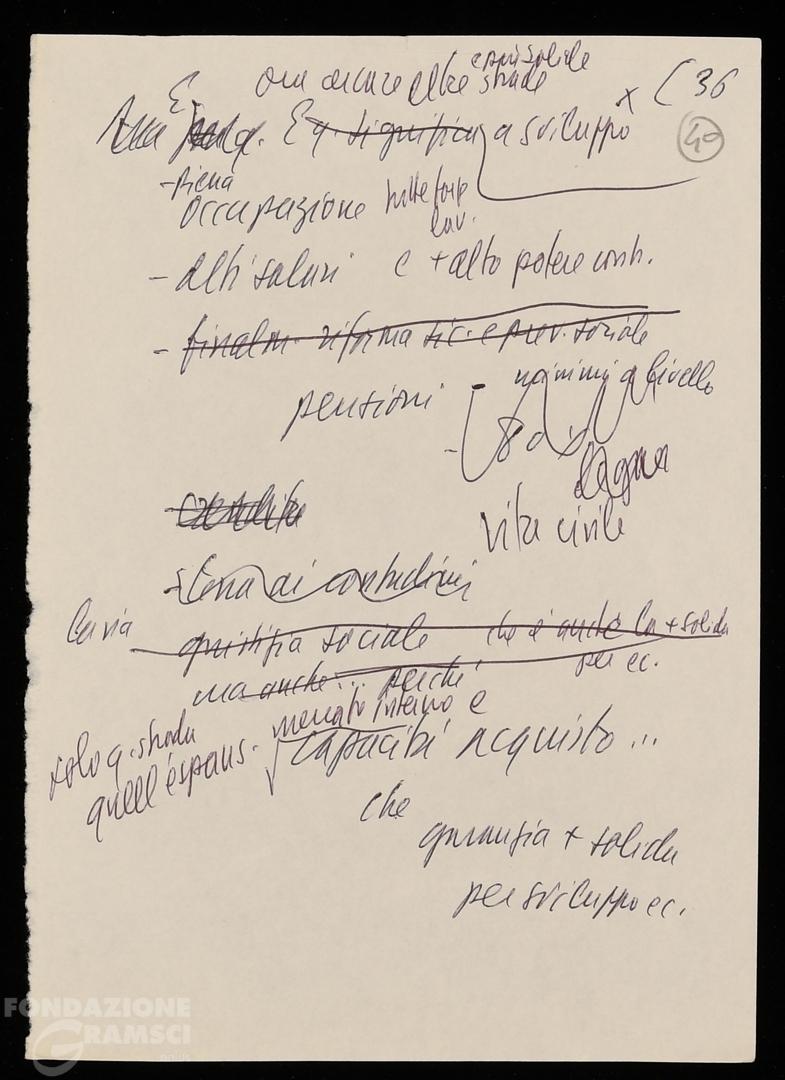 e più solide
ora ancora altre strade
x C 36
E
40
. E q. significa a sviluppo
- piena
occupazione tutte forze
lav.
- alti salari e + alto potere contr.
- finalm. riforma sic. e prev. sociale
minimi a livello
pensioni
degna
vita civile
- terra ai contadini
La via
giustizia sociale che è anche la + solida
per ec.
ma anche... perché
solo q. strada mercato interno e
quell'espans. capacità acquisto...
che
garanzia + solida
per sviluppo ec.
FONDAZIONE
GRAMSCI
onlus